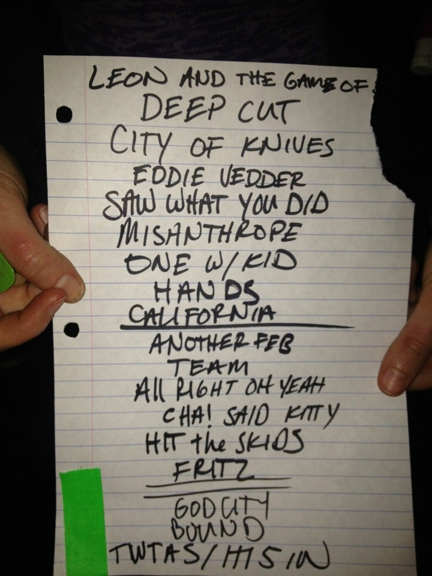 LEON AND THE GAME OF
DEEP CUT
CITY OF KNIVES
EDDIE VEDDER
SAW WHAT YOU DID
MISANTHROPE
ONE W/KID
HANDS
CALIFORNIA
ANOTHER FEB
TEAM
All RIGHT OH YEAH
CHA! SAID KITTY
HIT the SKIDS
FRITZ
GODCITY
BOUND
TWTAS/